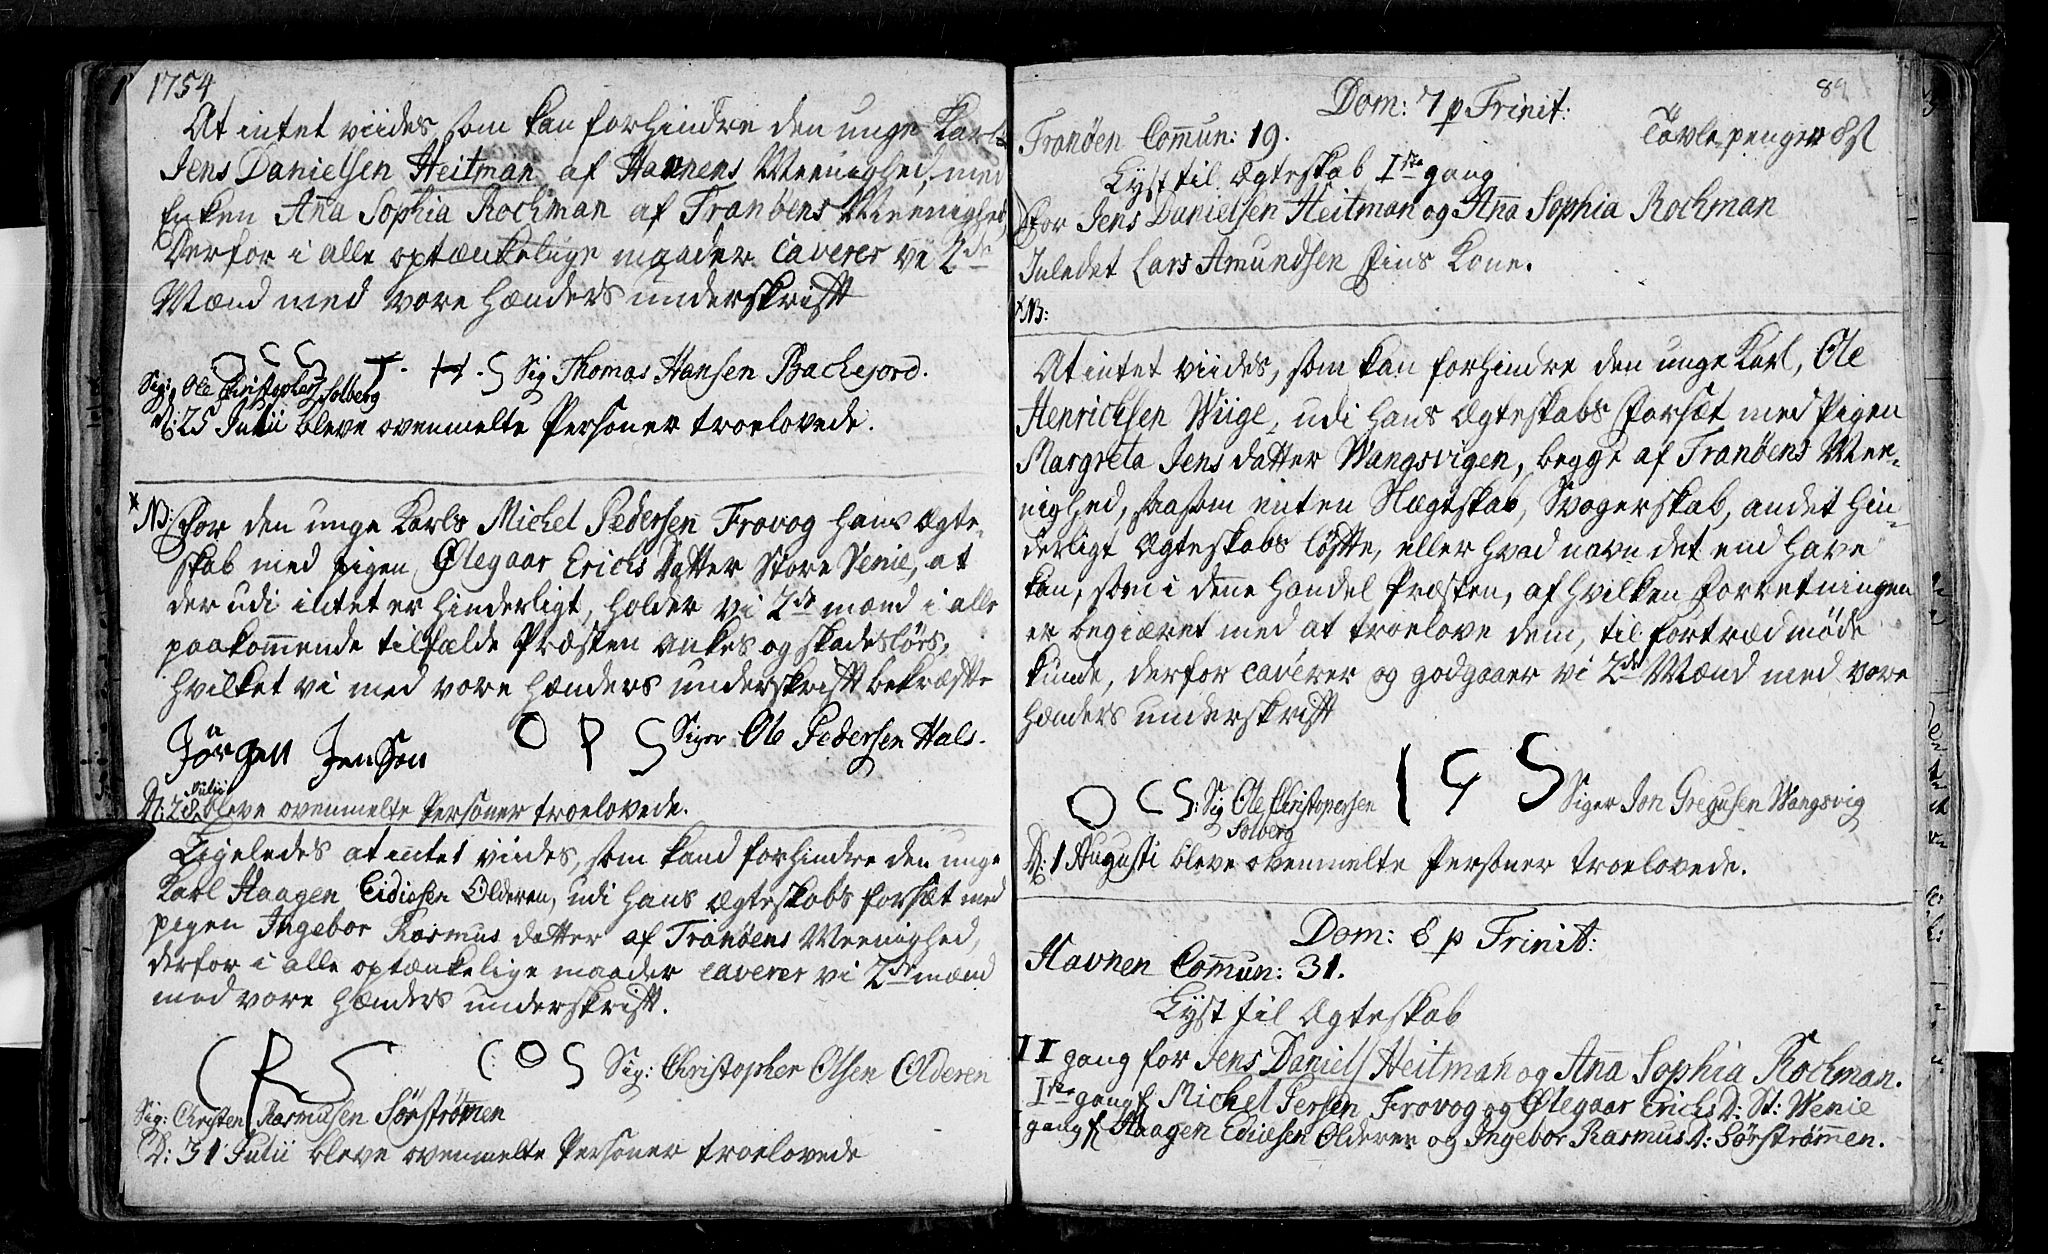 1754
At intet viides, som kan forhindre den unge Karl
Jens Danielsen Heitman af Havnens Meenighed, med
Enken Aña Sophia Rochman af Tranøens Meenighed,
Derfor i alle optænkelige maader caverer vi 2de
Mænd med vore hænders underskrifft
O C S T. H. S Sig Thomas Hansen Bachejord.
Sig: Ole Christophers: Solberg
D: 25 Julii bleve ovenmelte Personer troelovede.
NB: For den unge Karls Michel Pedersen Frovog hans Ægte-
skab med pigen Ølegaar Erichs Datter Store Venie, at
der udi intet er hinderligt, holder vi 2de mænd i alle
paakom̄ende tilfælde Præsten ankes og skadesløs,
hvilket vi med vore hænders underskrifft bekræffte
Jörgen Jensön O P S Siger Ole Pedersen Hals.
D: 28 Julii bleve ovenmelte Personer troelovede.
Ligeledes at intet viides, som kand forhindre den unge
Karl Haagen Eidissen Olderen, udi hans Ægteskabs forsæt med
pigen Ingebor Rasmus datter af Tranøens Meenighed,
derfor i alle optænkelige maader caverer vi 2de mænd
med vore hænders underskrifft.
C R S C O S Sig: Christopher Olsen Olderen
Sig: Christen Rasmusen Sørstrøm̄en
D: 31 Julii bleve ovenmelte Personer troelovede
89
Dom: 7 p Trinit:
Tranøen Com̄un: 19. Tavlepenger 8 sl
Lyst til Ægteskab Iste gang
For Jens Danielsen Heitman og Aña Sophia Rochman
Inledet Lars Amundsen Fins Kone.
NB:
At intet viides, som kan forhindre den unge Karl, Ole
Henrichsen Wiige, udi hans Ægteskabs forsæt med Pigen
Margreta Jens datter Wangsvigen, begge af Tranøens Mee-
nighed, saasom enten Slægtskab, Svogerskab, andet hin-
derligt Ægteskabs løffte, eller hvad navn det end have
kan, som i dene handel Præsten, af hvilken forretningen
er begiæret med at troelove dem, til fortræd møde
kunde, derfor caverer og godgaaer vi 2de Mænd med vore
hænders underskrifft
O C S: Sig Ole Christopersen I G S Siger Jon Gregusen Wangsvig
Solberg
D: 1 Augusti bleve ovenmelte Personer troelovede.
Dom: 8 p Trinit:
Havnen Com̄un: 31.
Lyst til Ægteskab
II gang for Jens Daniels Heitman og Aña Sophia Rochman.
Iste gang f Michel Persen Frovog og Ølegaar Erichs D: St: Wenie
I gang f Haagen Edissen Olderen og Ingebor Rasmus D: Sørstrøm̄en.